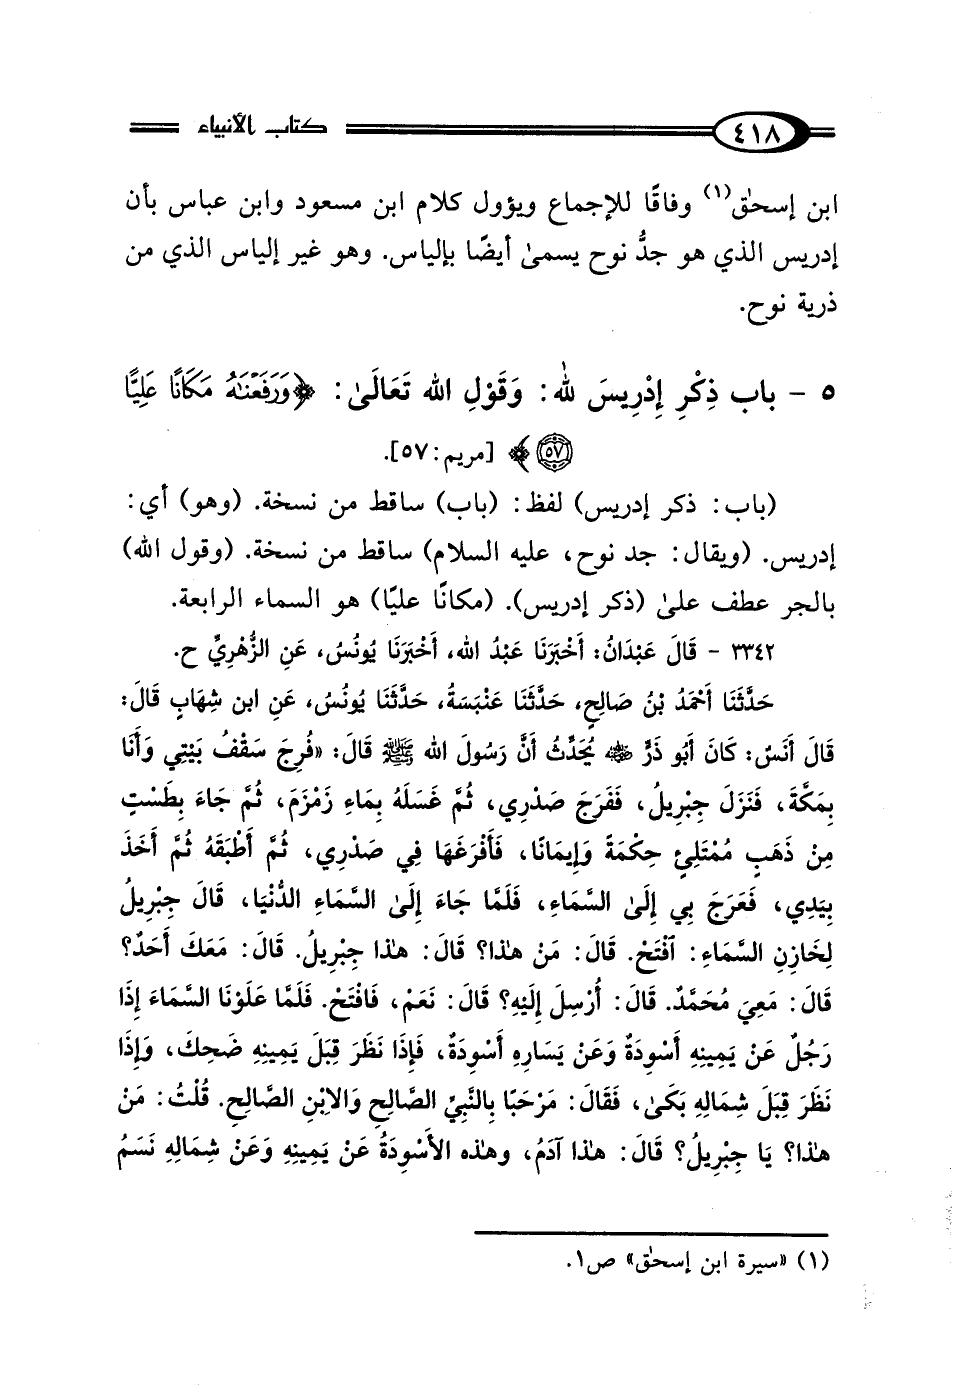 ٤١٨ كتاب الأنبياء
ابن إسحٰق(١) وفاقًا للإجماع ويؤول كلام ابن مسعود وابن عباس بأن
إدريس الذي هو جدُّ نوح يسمىٰ أيضًا بإلياس. وهو غير إلياس الذي من
ذرية نوح.
٥ - باب ذِكْرِ إِدْرِيسَ ﵇: وَقَوْلِ الله تَعَالَىٰ: ﴿وَرَفَعْنَٰهُ مَكَانًا عَلِيًّا
٥٧﴾ [مريم: ٥٧].
(باب: ذكر إدريس) لفظ: (باب) ساقط من نسخة. (وهو) أي:
إدريس. (ويقال: جد نوح، عليه السلام) ساقط من نسخة. (وقول الله)
بالجر عطف علىٰ (ذكر إدريس). (مكانًا عليًا) هو السماء الرابعة.
٣٣٤٢ - قَالَ عَبْدَانُ: أَخْبَرَنَا عَبْدُ الله، أَخْبَرَنَا يُونُسُ، عَنِ الزُّهْرِيِّ ح.
حَدَّثَنَا أَحْمَدُ بْنُ صَالِحٍ، حَدَّثَنَا عَنْبَسَةُ، حَدَّثَنَا يُونُسُ، عَنِ ابن شِهَابٍ قَالَ:
قَالَ أَنَسٌ: كَانَ أَبُو ذَرٍّ ﵁ يُحَدِّثُ أَنَّ رَسُولَ الله ﷺ قَالَ: «فُرِجَ سَقْفُ بَيْتِي وَأَنَا
بِمَكَّةَ، فَنَزَلَ جِبْرِيلُ، فَفَرَجَ صَدْرِي، ثُمَّ غَسَلَهُ بِمَاءِ زَمْزَمَ، ثُمَّ جَاءَ بِطَسْتٍ
مِنْ ذَهَبٍ مُمْتَلِئٍ حِكْمَةً وَإِيمَانًا، فَأَفْرَغَهَا فِي صَدْرِي، ثُمَّ أَطْبَقَهُ ثُمَّ أَخَذَ
بِيَدِي، فَعَرَجَ بِي إِلَىٰ السَّمَاءِ، فَلَمَّا جَاءَ إِلَىٰ السَّمَاءِ الدُّنْيَا، قَالَ جِبْرِيلُ
لِخَازِنِ السَّمَاءِ: ٱفْتَحْ. قَالَ: مَنْ هٰذا؟ قَالَ: هٰذا جِبْرِيلُ. قَالَ: مَعَكَ أَحَدٌ؟
قَالَ: مَعِيَ مُحَمَّدٌ. قَالَ: أُرْسِلَ إِلَيْهِ؟ قَالَ: نَعَمْ، فَافْتَحْ. فَلَمَّا عَلَوْنَا السَّمَاءَ إِذَا
رَجُلٌ عَنْ يَمِينِهِ أَسْوِدَةٌ وَعَنْ يَسَارِهِ أَسْوِدَةٌ، فَإِذَا نَظَرَ قِبَلَ يَمِينِهِ ضَحِكَ، وَإِذَا
نَظَرَ قِبَلَ شِمَالِهِ بَكَىٰ، فَقَالَ: مَرْحَبًا بِالنَّبِيِّ الصَّالِحِ وَالِابْنِ الصَّالِحِ. قُلْتُ: مَنْ
هٰذا؟ يَا جِبْرِيلُ؟ قَالَ: هٰذا آدَمُ، وهٰذه الأَسْوِدَةُ عَنْ يَمِينِهِ وَعَنْ شِمَالِهِ نَسَمُ
(١) «سيرة ابن إسحٰق» ص١.